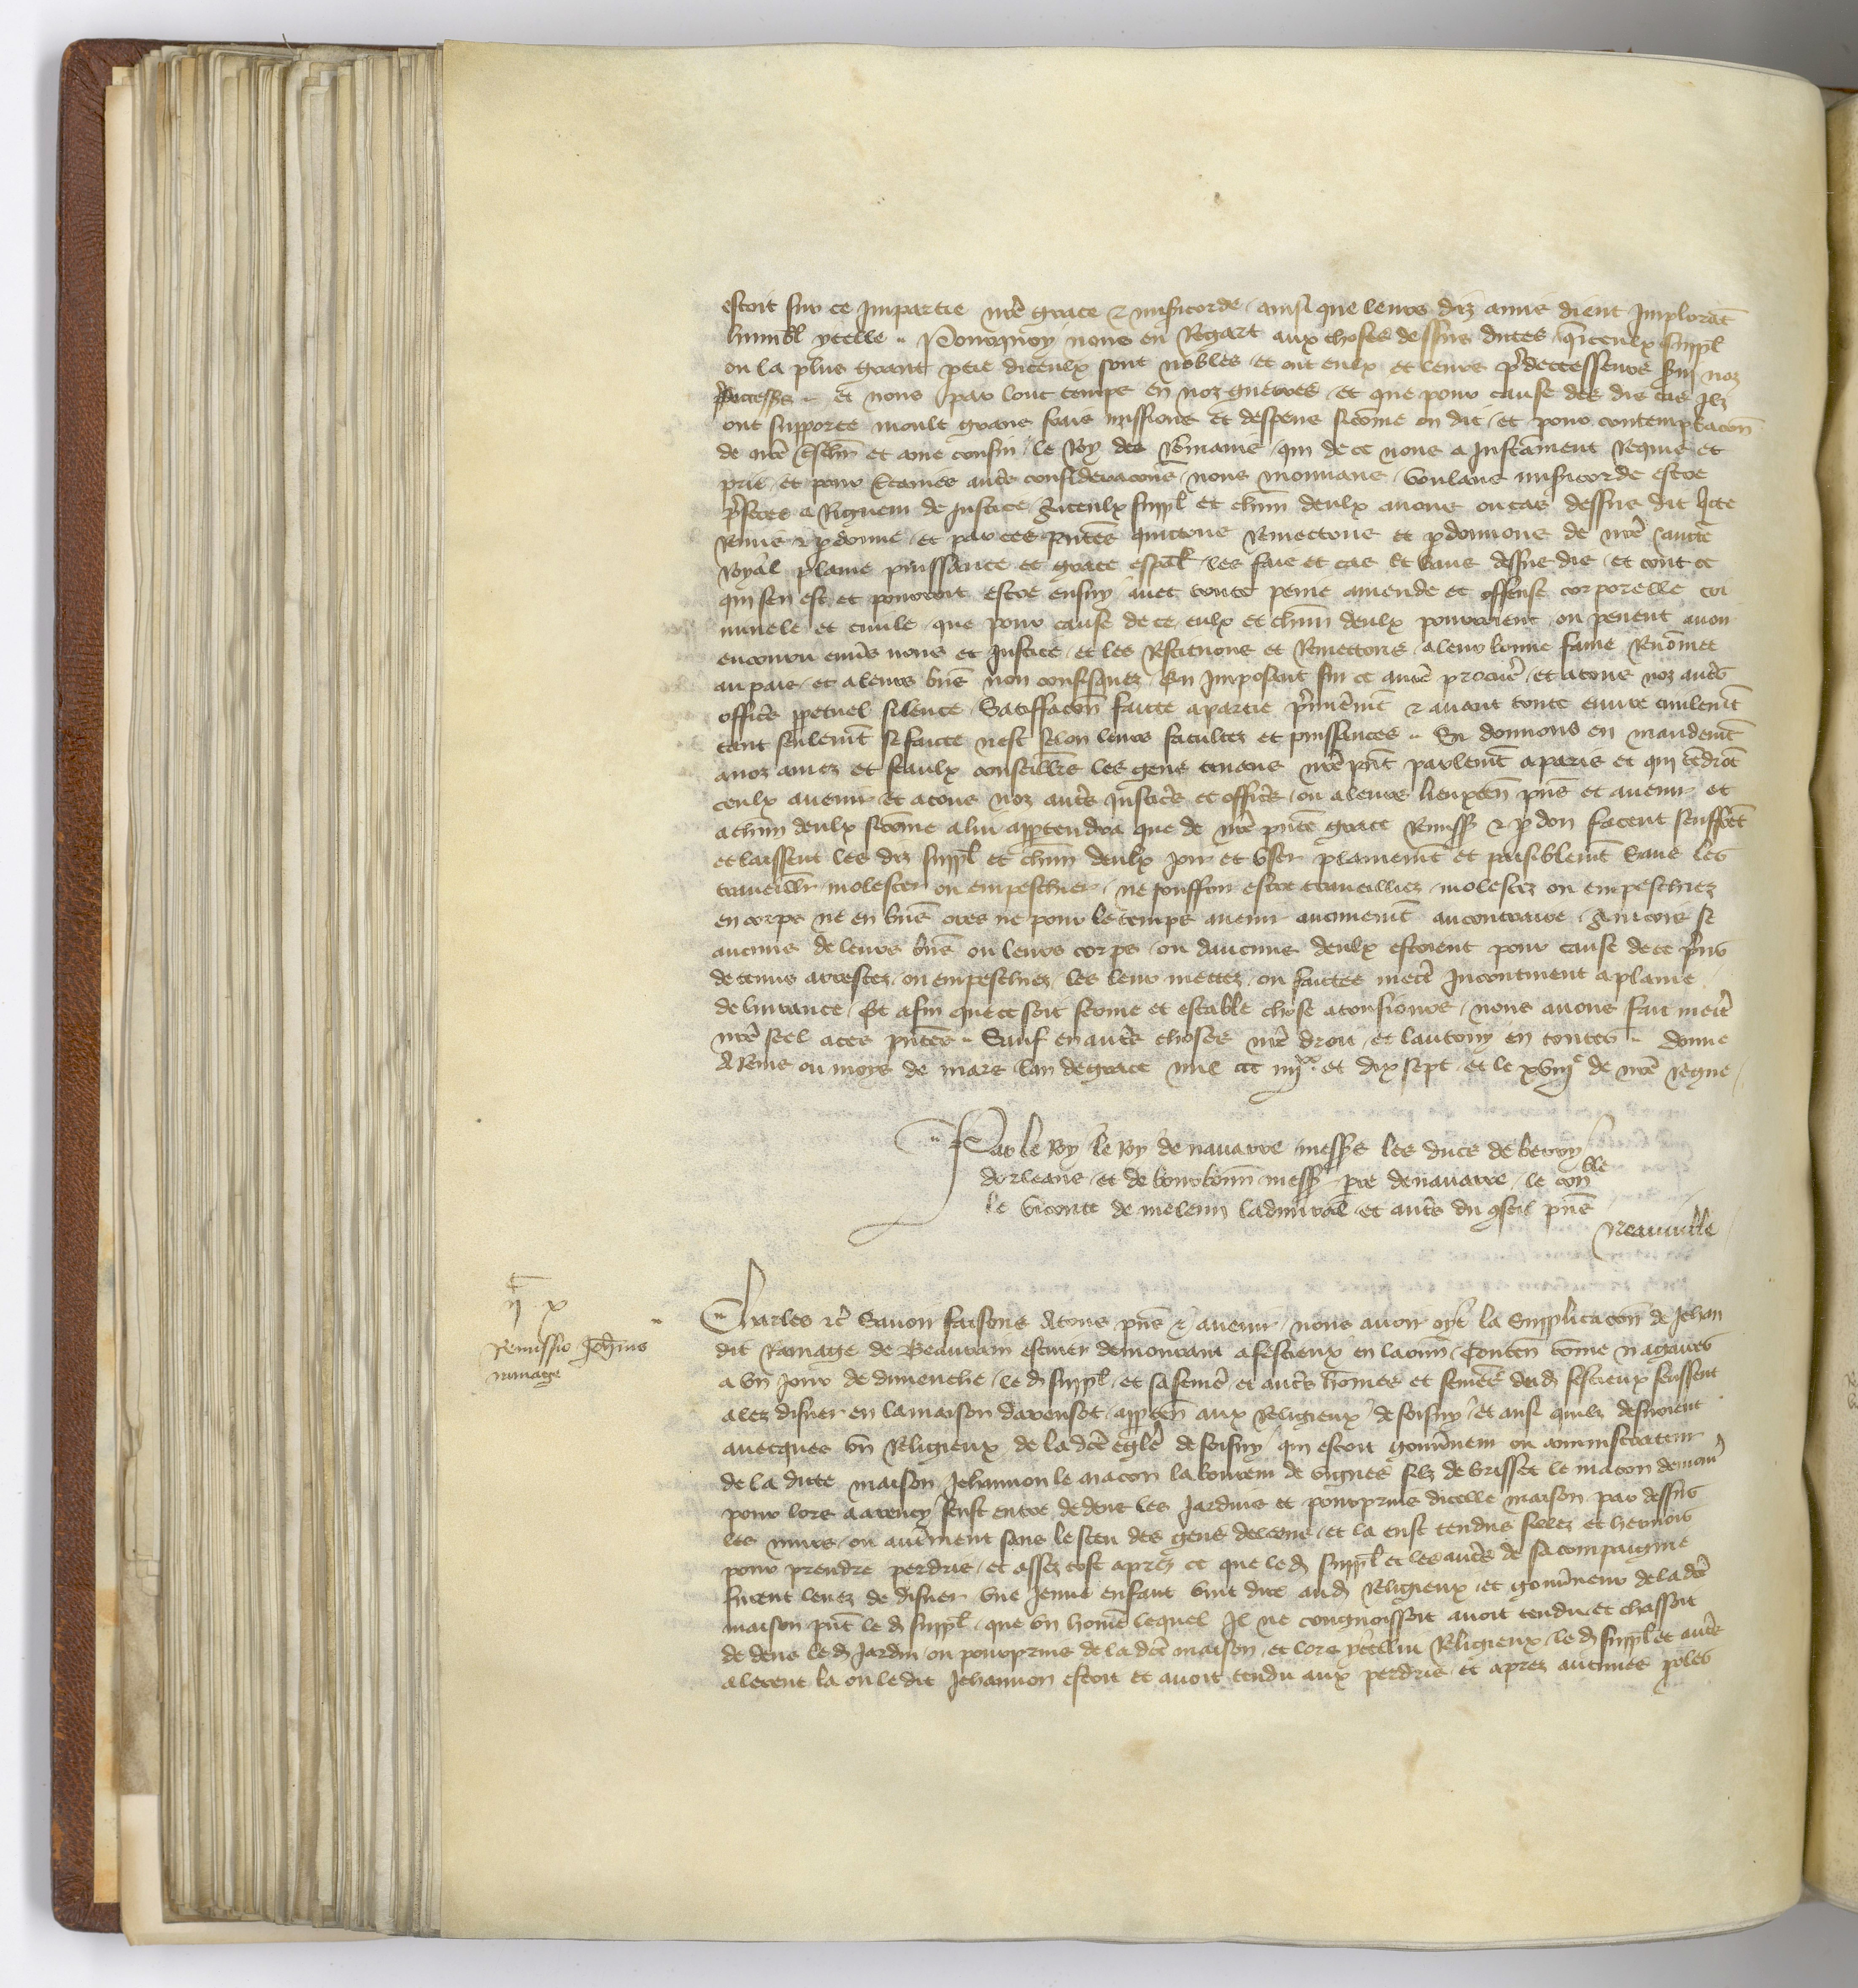 estoit sur ce Impartie nre grace & misericorde ainsi que leurs diz amis dient Implorat
humbl ycelle Pourquoy nous eu Regart aux choses dessus dictes qiceulx suppl
ou la plus grant ptie diceulx sont nobles et ont eulx et leurs pdecesseurs suy noz
et nous par lonc temps en noz guerres et que pour cause des dis cas Ilz
ont supporte moult grans frais missions et despens sicome on dit et pour contemplacon
de nre et ame cousin le Roy des Romains qui de ce nous a Instament Requis et
prie et pour certaines autres consideracons nous mouvans voulans misericorde estre
a Rigueur de Justice Aiceulx suppl et chun deulx avons ou cas dessus dit
Remis & pdonne et par ces pntes quictons Remectons et pdonnons de nre aucte
Royal plaine puissance et grace espal les fais et cas dessus dis et tout ce
qui sen est et pourroit estre ensuy avec toute peine amende et offense corporelle cri
minele et civile que pour cause de ce eulx et chun deulx pourroient ou peuent avoir
encouru envs nous et Justice et les Restituons et Remettons a leur bonne fame Renomee
au pais et a leurs bns non confisquez En Imposant sur ce a nre procur et a tous noz autrs
officrs ppetuel silence Satiffacon faicte a partie pmierement & avant toute euvre civilemt
tant seulemt se faicte nest selon leurs facultez et puissances Si donnons en mandemt
a noz amez et feaulx conseillrs les gens tenans nre pnt parlemt a paris et qui tedrot
ceulx avenir et a tous noz autrs Justicrs et officrs ou a leurs lieuxten pns et avenir et
a chun deulx sicome a lui apptendra que de nre pnte grace Remiss & pdon facent seuffret
et laissent les diz suppl et chun deulx joir et user plainemt et paisiblemt sans les
traveillr molester ou empeschier ne souffrir estre travailliez molestez ou empeschiez
en corps ne en bns ores ne pour le temps avenir aucunemt au contraire Aincois se
aucuns de leurs bns ou leurs corps ou daucuns deulx estoient pour cause de ce prins
detenus arrestez ou empeschiez les leur mettez ou faictes mectre Incontinent a plaine
delivrance Et afin que ce soit ferme et estable chose a tousiours nous avons fait mectre
nre seel a ces pntes Sauf en autrs choses nre droit et lautruy en toutes Donne
A Reins ou moys de mars lan de grace mil ccc iiijxx et dix sept et le xviije de nre Regne

Par le Roy le Roy de navarre messgrs les ducs de berry
dorleans et de bourbonn messr pre de navarre le conble
le viconte de meleun ladmiral et autrs du gseil pns
Neauville

ij x
Remissio Johannis
ramage

Charles &c Savoir faisons A tous pns & avenir nous avoir oye la Supplicacon de Jehan
dit Ramage de Beaurain escuier demourant a festieux en laonn Conten come nagaires
a un jour de dimenche le d suppl et sa feme et autrs homes et femes dud festieux feussent
alez disner en la maison apptn aux Religieux de foisny et ainsi quilz disnoient
avecques un Religieux de la dce egle de foisny qui estoit gouvneur ou amministrateur
de la dicte maison Jehannon le macon laboureur de vignes filz de brisset le macon demour
pour lors a arency feust entre dedens les Jardins et pourprins dicelle maison par dessus
les murs ou autrement sans le sceu des gens de leens et la eust tendus filez et hernois
pour prendre perdris et assez tost aprez ce que le d suppl et les autrs de sa compaignie
furent levez de disner une jeune enfant vint dire aud Religieux et gouvneur de la dce
maison pnt le d suppl que un home lequel Il ne congnoissoit avoit tendu et chassoit
dedens le d Jardin ou pourprins de la dce maison et lors ycellui Religieux le d suppl et autrs
alerent la ou le dit Jehannon estoit et avoit tendu aux perdris et aprez aucunes poles